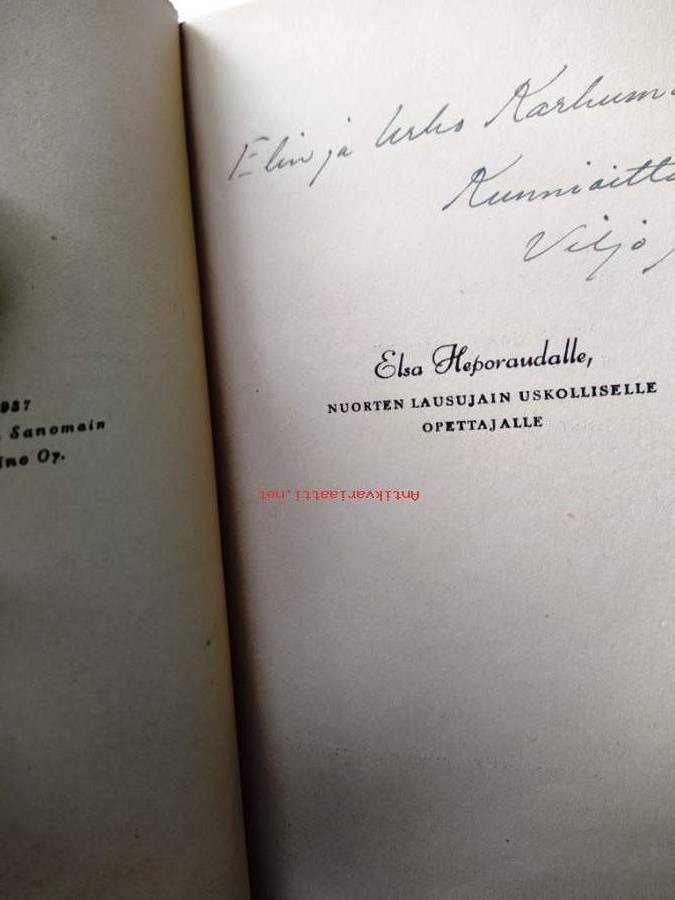 937
Sanomain
ino Oy.
Elin ja Urho Karhum
Kunnioitta
Viljo
Elsa Heporaudalle,
NUORTEN LAUSUJAIN USKOLLISELLE
OPETTAJALLE
Antikvariaatti.net